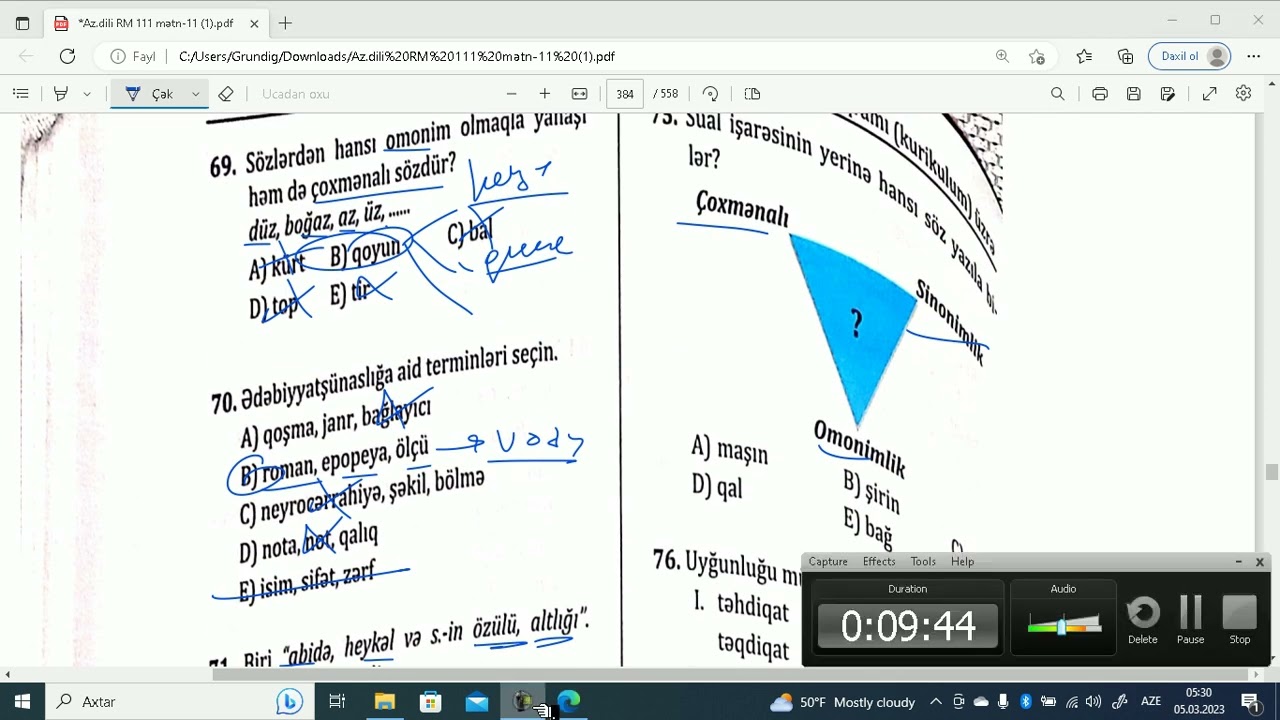 *Az.dili RM 111 mətn-11 (1).pdf
Fayl C:/Users/Grundig/Downloads/Az.dili%20RM%20111%20mətn-11%20(1).pdf Daxil ol
Çək Ucadan oxu 384 / 558
69. Sözlərdən hansı omonim olmaqla yanaşı
həm də çoxmənalı sözdür?
düz, boğaz, az, üz, ......
A) kürt B) qoyun C) bal
D) top E) tir
70. Ədəbiyyatşünaslığa aid terminləri seçin.
A) qoşma, janr, bağlayıcı
B) roman, epopeya, ölçü
C) neyrocərrahiyə, şəkil, bölmə
D) nota, not, qalıq
E) isim, sifət, zərf
71. Biri "abidə, heykəl və s.-in özülü, altlığı".
(kurikulum) üzrə
75. Sual işarəsinin yerinə hansı söz yazıla bi-
lər?
Çoxmənalı
Sinonimlik
?
Omonimlik
A) maşın
B) şirin
D) qal
E) bağ
76. Uyğunluğu
I. təhdiqat
təqdiqat
Capture Effects Tools Help
Duration Audio
0:09:44 Delete Pause Stop
Axtar 50°F Mostly cloudy AZE 05:30
05.03.2023